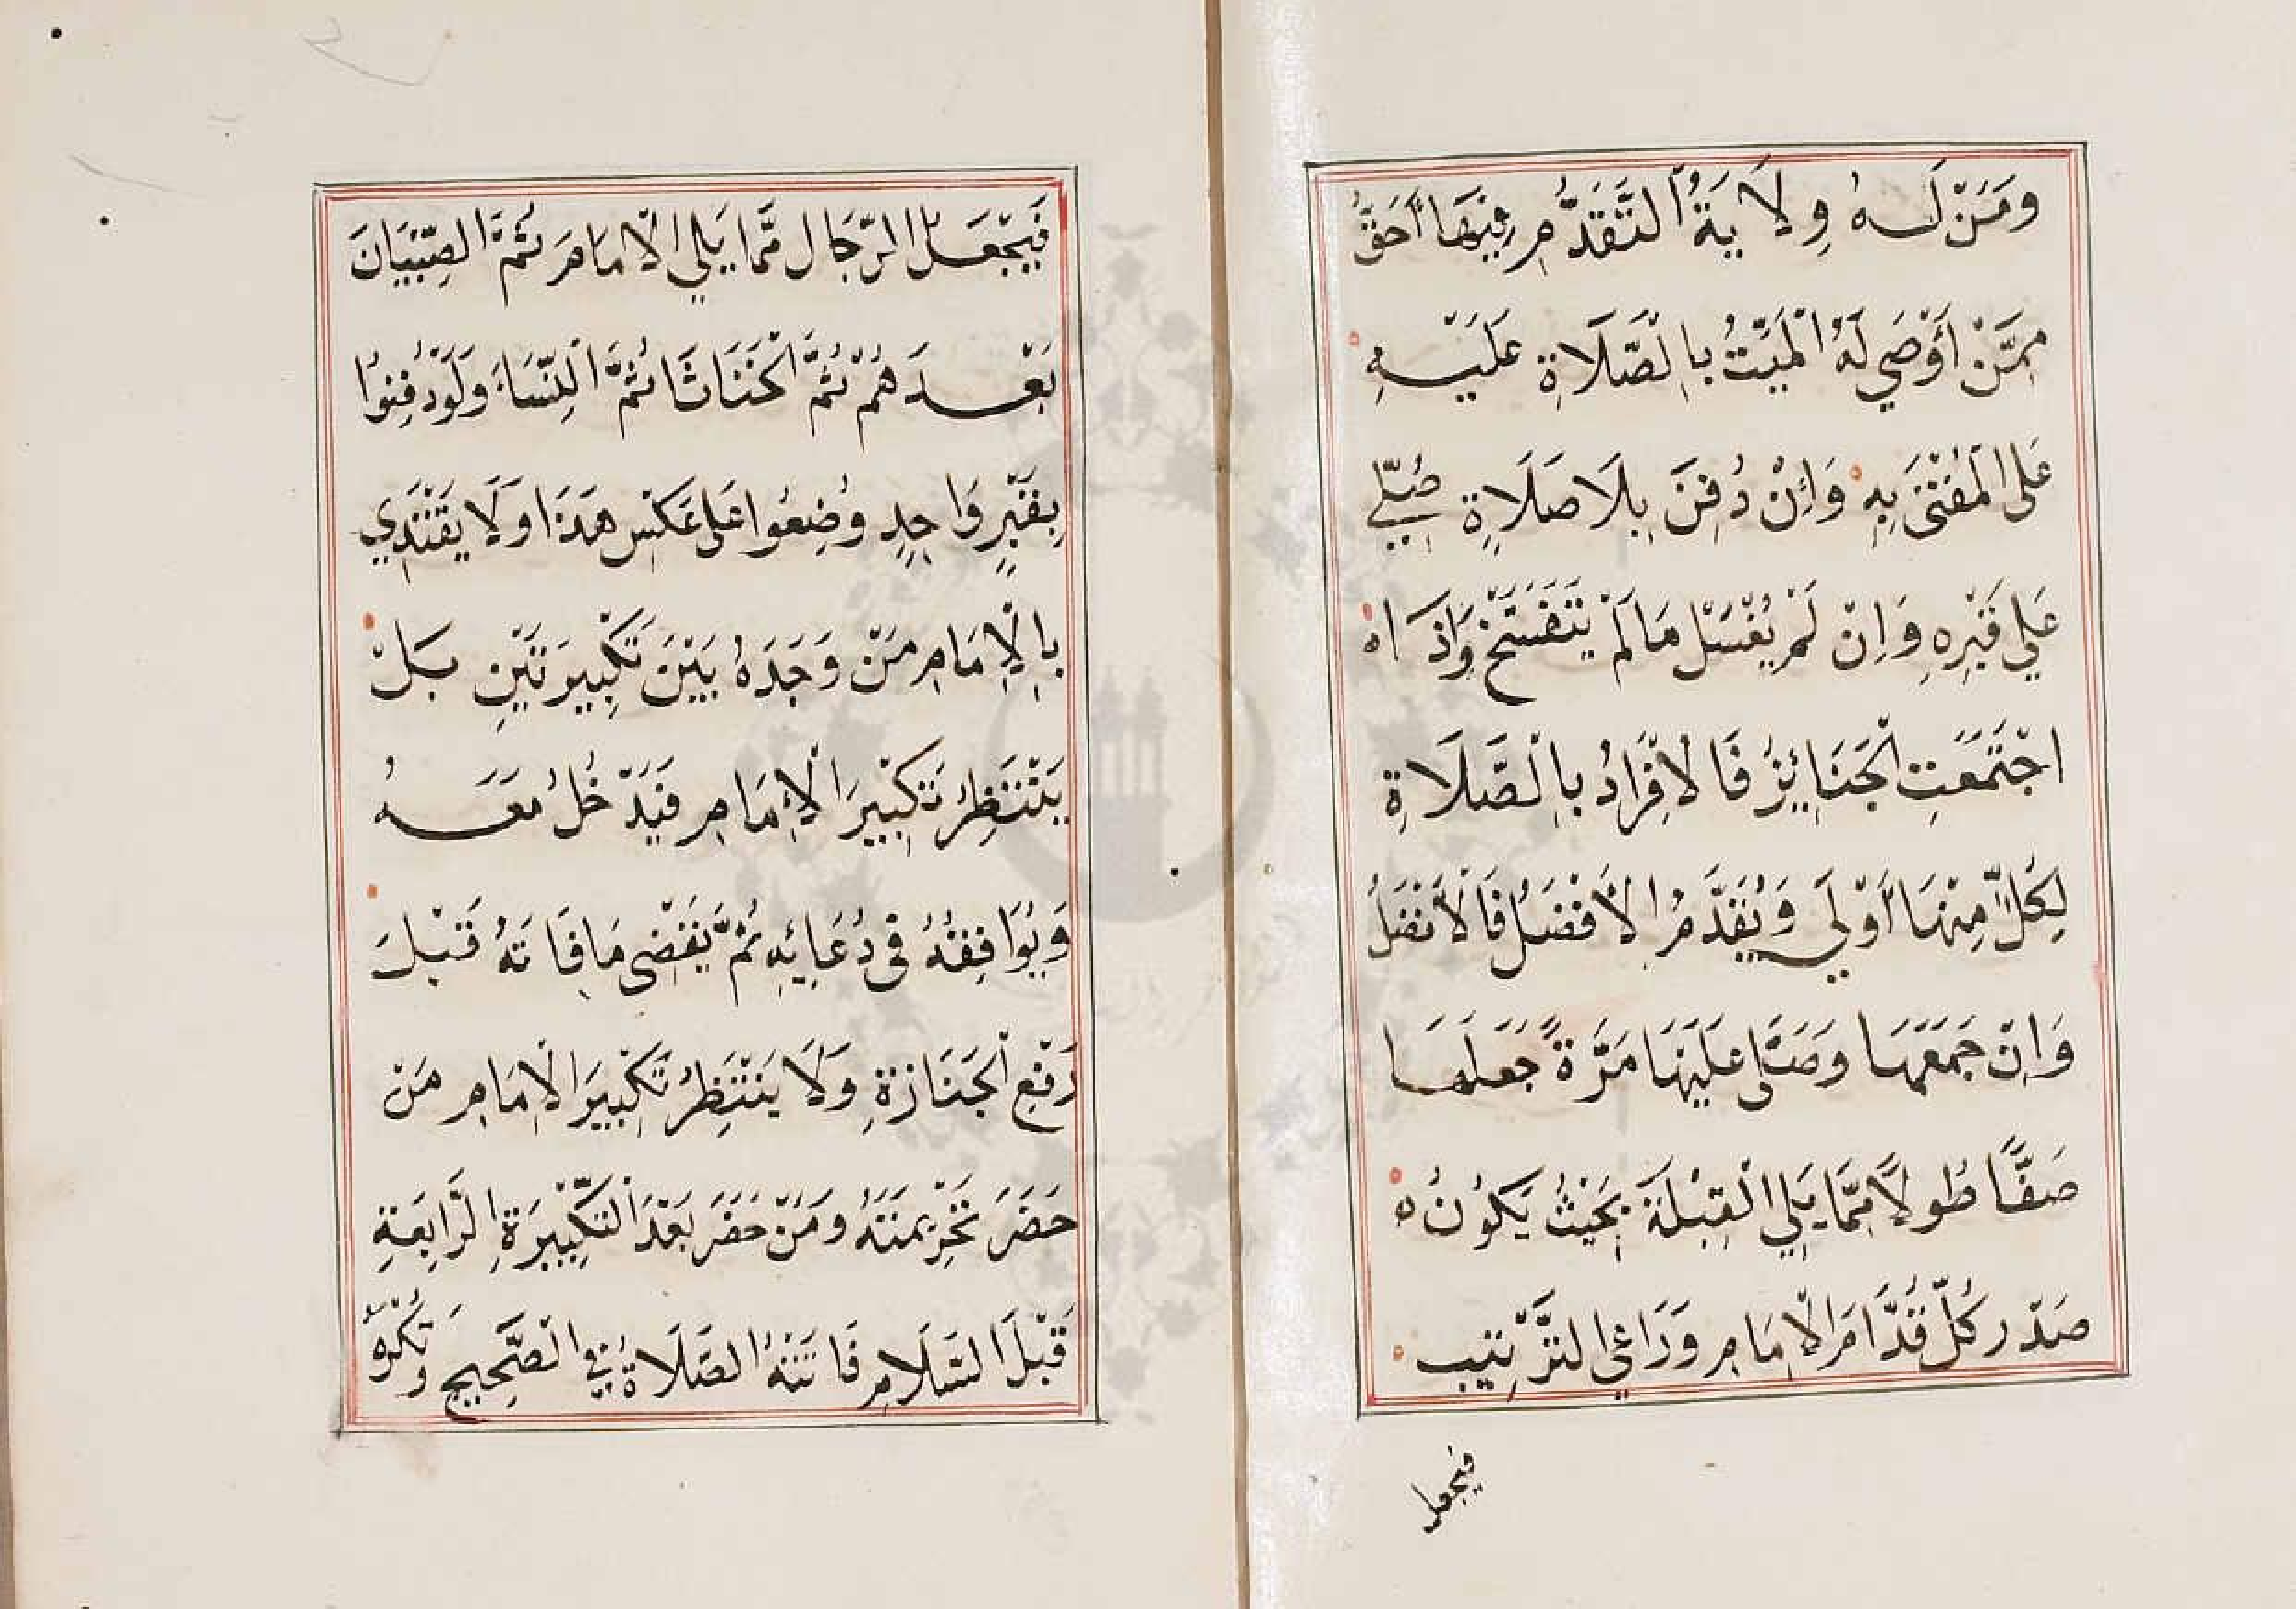 وَمَنْ لَهُ وِلَايَةُ التَّقَدُّمِ فِيهَا أَحَقُّ
مِمَّنْ أَوْصَي لَهُ الْمَيِّتُ بِالصَّلَاةِ عَلَيْهِ
عَلَى الْمُفْتَى بِهِ وَإِنْ دُفِنَ بِلَا صَلَاةٍ صُلِّي
عَلَي قَبْرِهِ وَإِنْ لَمْ يُغْسَلْ مَا لَمْ يَتَفَسَّخْ وَإِذَا
اجْتَمَعَتِ الْجَنَائِزُ فَالْأِفْرَادُ بِالصَّلَاةِ
لِكُلٍّ مِنْهَا أَوْلَي وَيُقَدَّمُ الْأَفْضَلُ فَالْأَفْضَلُ
وَإِنْ جَمَعَهَا وَصَلَّى عَلَيْهَا مَرَّةً جَعَلَهَا
صَفًّا طُولًا مِمَّا يَلِي الْقِبْلَةَ بِحَيْثُ يَكُونُ
صَدْرُ كُلٍّ قُدَّامَ الْإِمَامِ وَرَاعَي التَّرْتِيبَ
فيجعل
فَيَجْعَلُ الرِّجَالَ مِمَّا يَلِي الْإِمَامَ ثُمَّ الصِّبْيَانَ
بَعْدَهُمْ ثُمَّ الْخَنَاثَا ثُمَّ النِّسَاءَ وَلَوْ دُفِنُوا
بِقَبْرٍ وَاحِدٍ وُضِعُوا عَلَى عَكْسِ هَذَا وَلَا يَقْتَدِي
بِالْإِمَامِ مَنْ وَجَدَهُ بَيْنَ تَكْبِيرَتَيْنِ بَلْ
يَنْتَظِرُ تَكْبِيرَ الْإِمَامِ فَيَدْخُلُ مَعَهُ
وَيُوَافِقُهُ فِي دُعَائِهِ ثُمَّ يَقْضِي مَا فَاتَهُ قَبْلَ
رَفْعِ الْجَنَازَةِ وَلَا يَنْتَظِرُ تَكْبِيرَ الْإِمَامِ مَنْ
حَضَرَ تَحْرِيمَتَهُ وَمَنْ حَضَرَ بَعْدَ التَّكْبِيرَةِ الرَّابِعَةِ
قَبْلَ السَّلَامِ فَاتَتْهُ الصَّلَاةُ فِي الصَّحِيحِ وَتُكْرَهُ